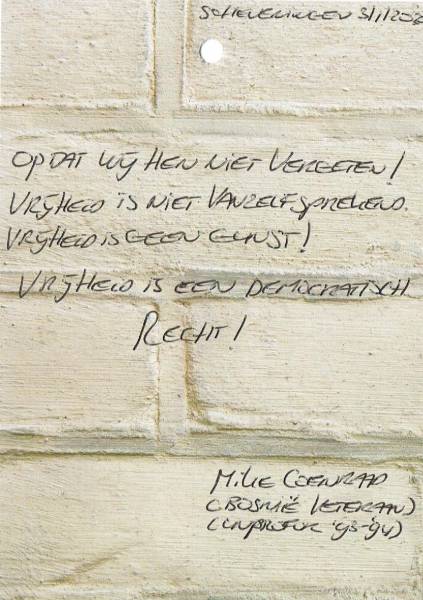 SCHEVENINGEN 3/1/202
OPDAT WIJ HEN NIET VERGETEN!
VRIJHEID IS NIET VANZELFSPREKEND.
VRIJHEID IS GEEN GUNST!
VRIJHEID IS EEN DEMOCRATISCH
RECHT!
MIKE COENRAD
(BOSNIË VETERAAN)
(UNPROFOR '93-'94)